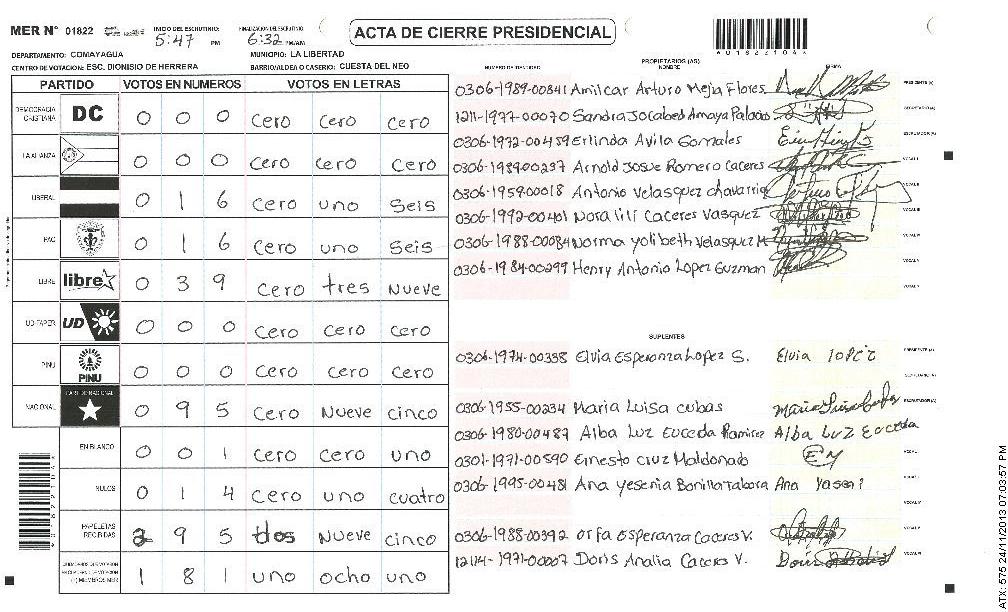 MER N° 01822 INICIO DEL ESCRUTINIO: 5:47 PM FINALIZACION DEL ESCRUTINIO: 6:32 PM/AM
ACTA DE CIERRE PRESIDENCIAL
DEPARTAMENTO: COMAYAGUA MUNICIPIO: LA LIBERTAD
CENTRO DE VOTACION: ESC. DIONISIO DE HERRERA BARRIO/ALDEA O CASERIO: CUESTA DEL NEO
PARTIDO VOTOS EN NUMEROS VOTOS EN LETRAS
DEMOCRACIA CRISTIANA DC 0 0 0 cero cero cero
LA ALIANZA 0 0 0 cero cero cero
LIBERAL 0 1 6 cero uno seis
PAC 0 1 6 cero uno seis
LIBRE libre 0 3 9 cero tres nueve
UD-FAPER UD 0 0 0 cero cero cero
PINU PINU 0 0 0 cero cero cero
NACIONAL PARTIDO NACIONAL 0 9 5 cero nueve cinco
EN BLANCO 0 0 1 cero cero uno
NULOS 0 1 4 cero uno cuatro
PAPELETAS RECIBIDAS 2 9 5 dos nueve cinco
1 8 1 uno ocho uno
NUMERO DE IDENTIDAD PROPIETARIOS (AS) NOMBRE FIRMA
0306-1989-00841 Amilcar Arturo Mejia Flores PRESIDENTE (A)
1211-1977-00070 Sandra Jocabed Amaya Palacio SECRETARIO (A)
0306-1972-00459 Erlinda Avila Gomales ESCRUTADOR (A)
0306-1989-00237 Arnold Josue Romero Caceres VOCAL I
0306-1959-00018 Antonio Velasquez chavarria VOCAL II
0306-1992-00401 Nora lili Caceres Vasquez VOCAL III
0306-1988-00084 Norma yolibeth Velasquez M VOCAL IV
0306-1984-00299 Henry Antonio Lopez Guzman VOCAL V
SUPLENTES
0306-1974-00338 Elvia Esperanza Lopez S. Elvia lopez PRESIDENTE (A)
SECRETARIO (A)
0306-1955-00234 Maria Luisa cubas ESCRUTADOR (A)
0306-1980-00487 Alba Luz Euceda Ramirez Alba Luz Euceda
0301-1971-00590 Ernesto cruz Maldonado EM
0306-1995-00481 Ana yesenia Bonilla Tabora Ana Yaseni
0306-1988-00392 orfa Esperanza Caceres V.
12114-1971-00007 Doris Analia Caceres V.
ATX: 575 24/11/2013 07:03:57 PM